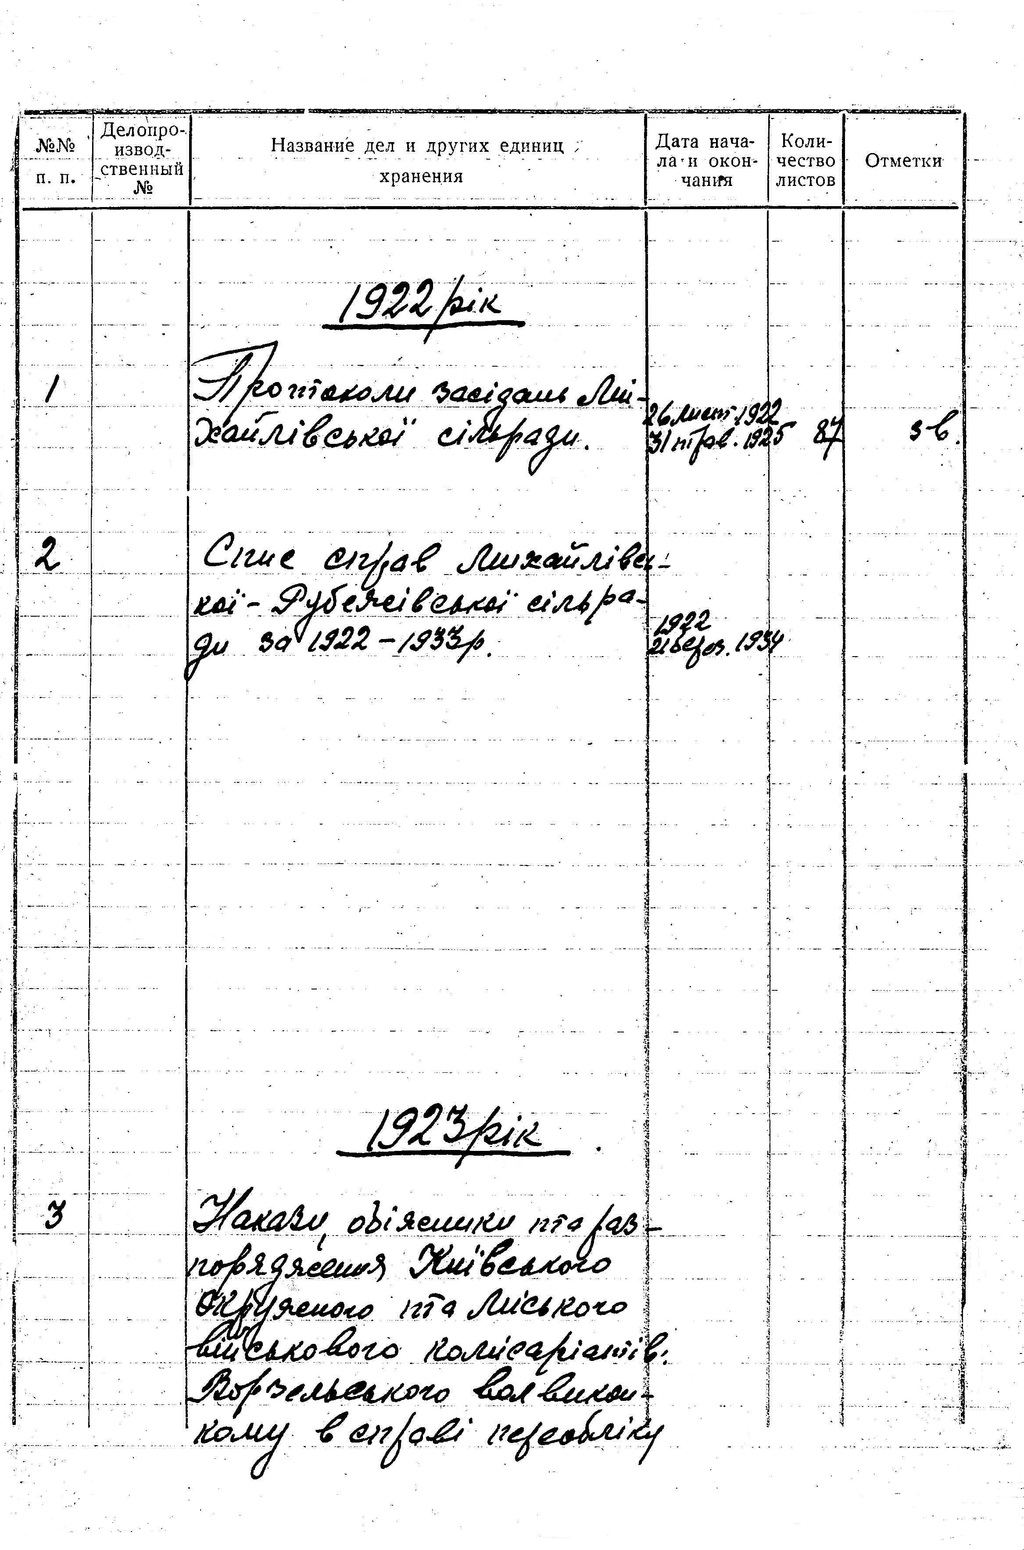 №№ п. п.
Делопро-
извод-
ственный
№
Название дел и других единиц
хранения
Дата нача-
ла и окон-
чания
Коли-
чество
листов
Отметки
1922 рік
1 Протоколи засідань Ми-
хайлівської сільради. 26 лист. 1922
31 трав. 1925 87 зв.
2 Спис справ Михайлівсь-
кої-Рубежівської сільра-
ди за 1922-1933р. 1922
21 берез. 1934
1923 рік
3 Накази, обіжники та раз-
порядження Київського
Окружного та Міського
військового комісаріатів.
Ворзельського волвикон-
кому в справі переобліку